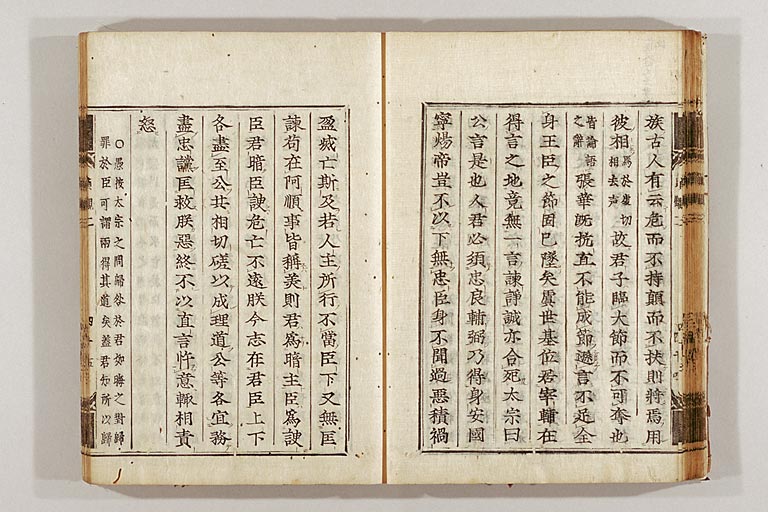 族古人有云危而不持顚而不扶則將焉用
彼相焉於虔切相去声故君子臨大節而不可奪也
皆論語之辭張華旣抗直不能成節遜言不足全
身王臣之節固已墜矣虞世基位居宰輔在
得言之地竟無一言諫諍誠亦合死太宗曰
公言是也人君必須忠良輔弼乃得身安國
寧煬帝豈不以下無忠臣身不聞過惡積禍
盈滅亡斯及若人主所行不當臣下又無匡
諫苟在阿順事皆稱美則君爲暗主臣爲諛
臣君暗臣諛危亡不遠朕今志在君臣上下
各盡至公共相切磋以成理道公等各宜務
盡忠讜匡救朕惡終不以直言忤意輒相責
怒
○愚按太宗之問歸咎於君如晦之對歸
罪於臣可謂兩得其道矣蓋君所以歸